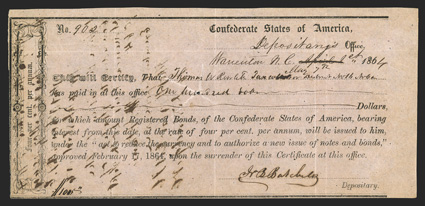 No. 962
Confederate States of America,
Depositary's Office,
Warrenton N.C. 1864
This will Certify, That Thomas
has paid in at this office One hundred
Dollars,
for which amount Registered Bonds, of the Confederate States of America, bearing
interest from this date, at the rate of four per cent. per annum, will be issued to him,
under the "act to reduce the currency and to authorize a new issue of notes and bonds,"
approved February 17, 1864, upon the surrender of this Certificate at this office.
Depositary.
Four per cent. per annum.